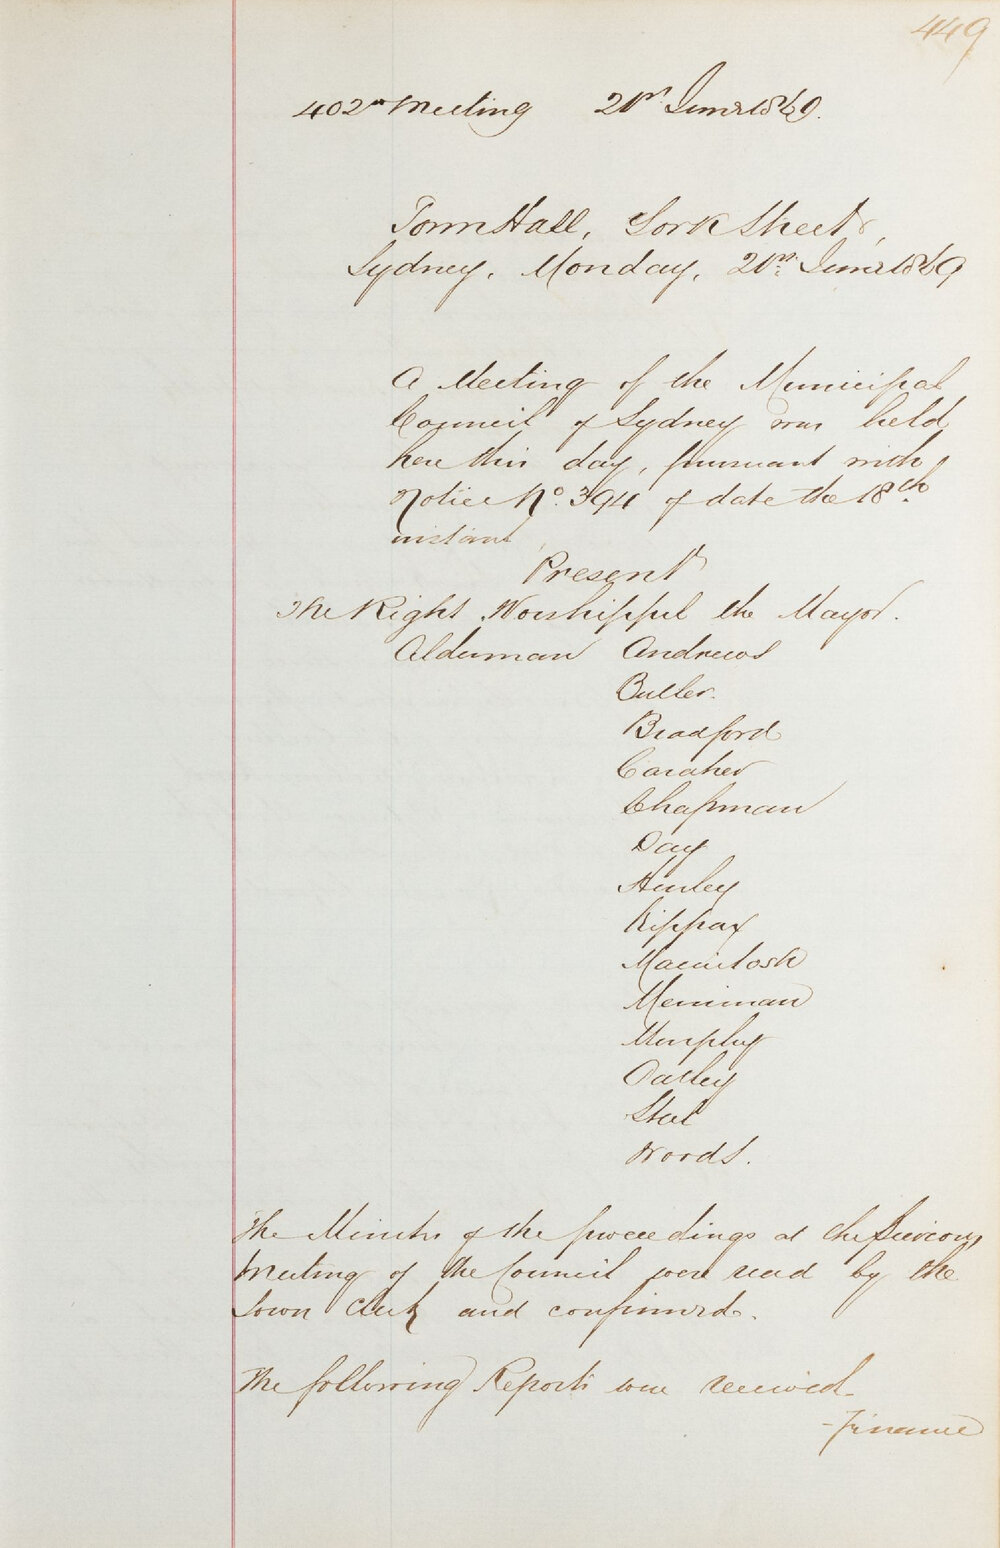 449
402nd Meeting 21st June 1869.
Town Hall, York Street,
Sydney, Monday, 21st June 1869
A Meeting of the Municipal
Council of Sydney was held
here this day, pursuant with
Notice No. 394 of date the 18th
instant
Present
The Right Worshipful the Mayor.
Alderman Andrews
Butler.
Bradford
Caraher
Chapman
Day
Hurley
Kippax
Macintosh
Merriman
Murphy
Oatley
Steel
Woods.
The Minutes of the proceedings at the previous
Meeting of the Council were read by the
Town Clerk and confirmed.
The following Reports were received
-Finance